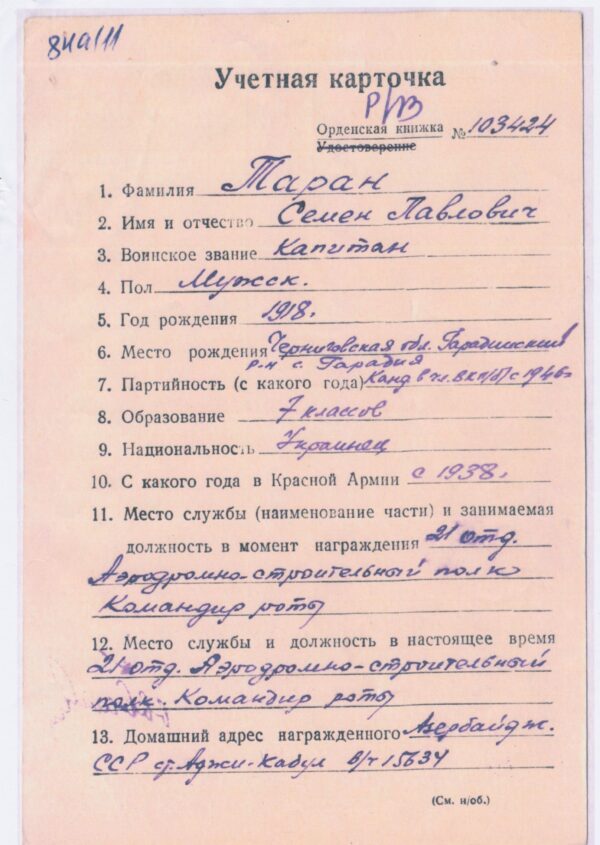 8на/11
Учетная карточка
Р/В
Орденская книжка № 103424
Удостоверение
1. Фамилия Таран
2. Имя и отчество Семен Павлович
3. Воинское звание Капитан
4. Пол Мужск.
5. Год рождения 1918г.
6. Место рождения Черниговская обл. Гарадинский
р-н с. Гарадня
7. Партийность (с какого года) Канд в чл. ВКП/б/ с 1946г
8. Образование 7 классов
9. Национальность Украинец
10. С какого года в Красной Армии с 1938г.
11. Место службы (наименование части) и занимаемая
должность в момент награждения 21 отд.
Аэродромно-строительный полк
Командир роты
12. Место службы и должность в настоящее время
21 отд. Аэродромно-строительный
полк. Командир роты
13. Домашний адрес награжденного Азербайдж.
ССР ст. Аджи-Кабул в/ч 15634
(См. н/об.)